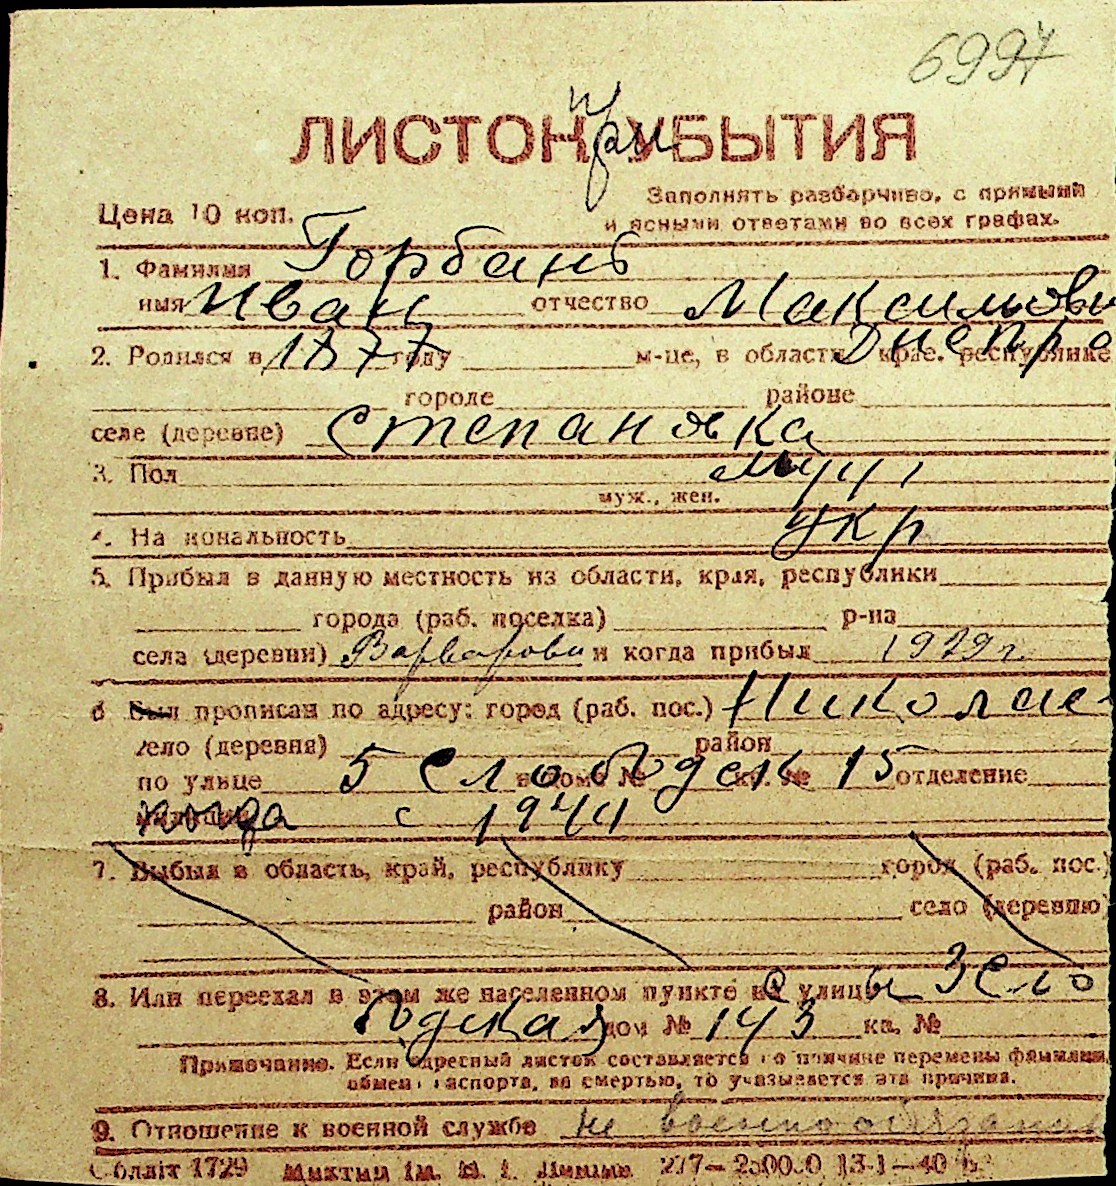 6997
ЛИСТОК при УБЫТИЯ
Заполнять разборчиво, с прямыми
Цена 10 коп.
и ясными ответами во всех графах.
1. Фамилия Горбань
имя Иван отчество Максимови
2. Родился в 1877 году м-це, в области, крае, республике Днепро
городе районе
селе (деревне) Степановка
3. Пол муж
муж., жен.
4. Национальность укр
5. Прибыл в данную местность из области, края, республики
города (раб. поселка) р-на
села (деревни) Варваровки и когда прибыл 1929 г.
6 Был прописан по адресу: город (раб. пос.) Николае
село (деревня) район
по улице 5 Слободск в доме № кв. № 15 отделение
милиции когда с 1944
7. Выбыл в область, край, республику город (раб. пос.)
район село (деревню)
8. Или переехал в этом же населенном пункте с улицы 3 Сло
бодская дом № 143 кв. №
Примечание. Если адресный листок составляется по причине перемены фамилии,
обмена паспорта, за смертью, то указывается эта причина.
9. Отношение к военной службе не военнообязанн
Обллiт 1729 iм. В. I. Ленiна. 277—25000 13-1—40